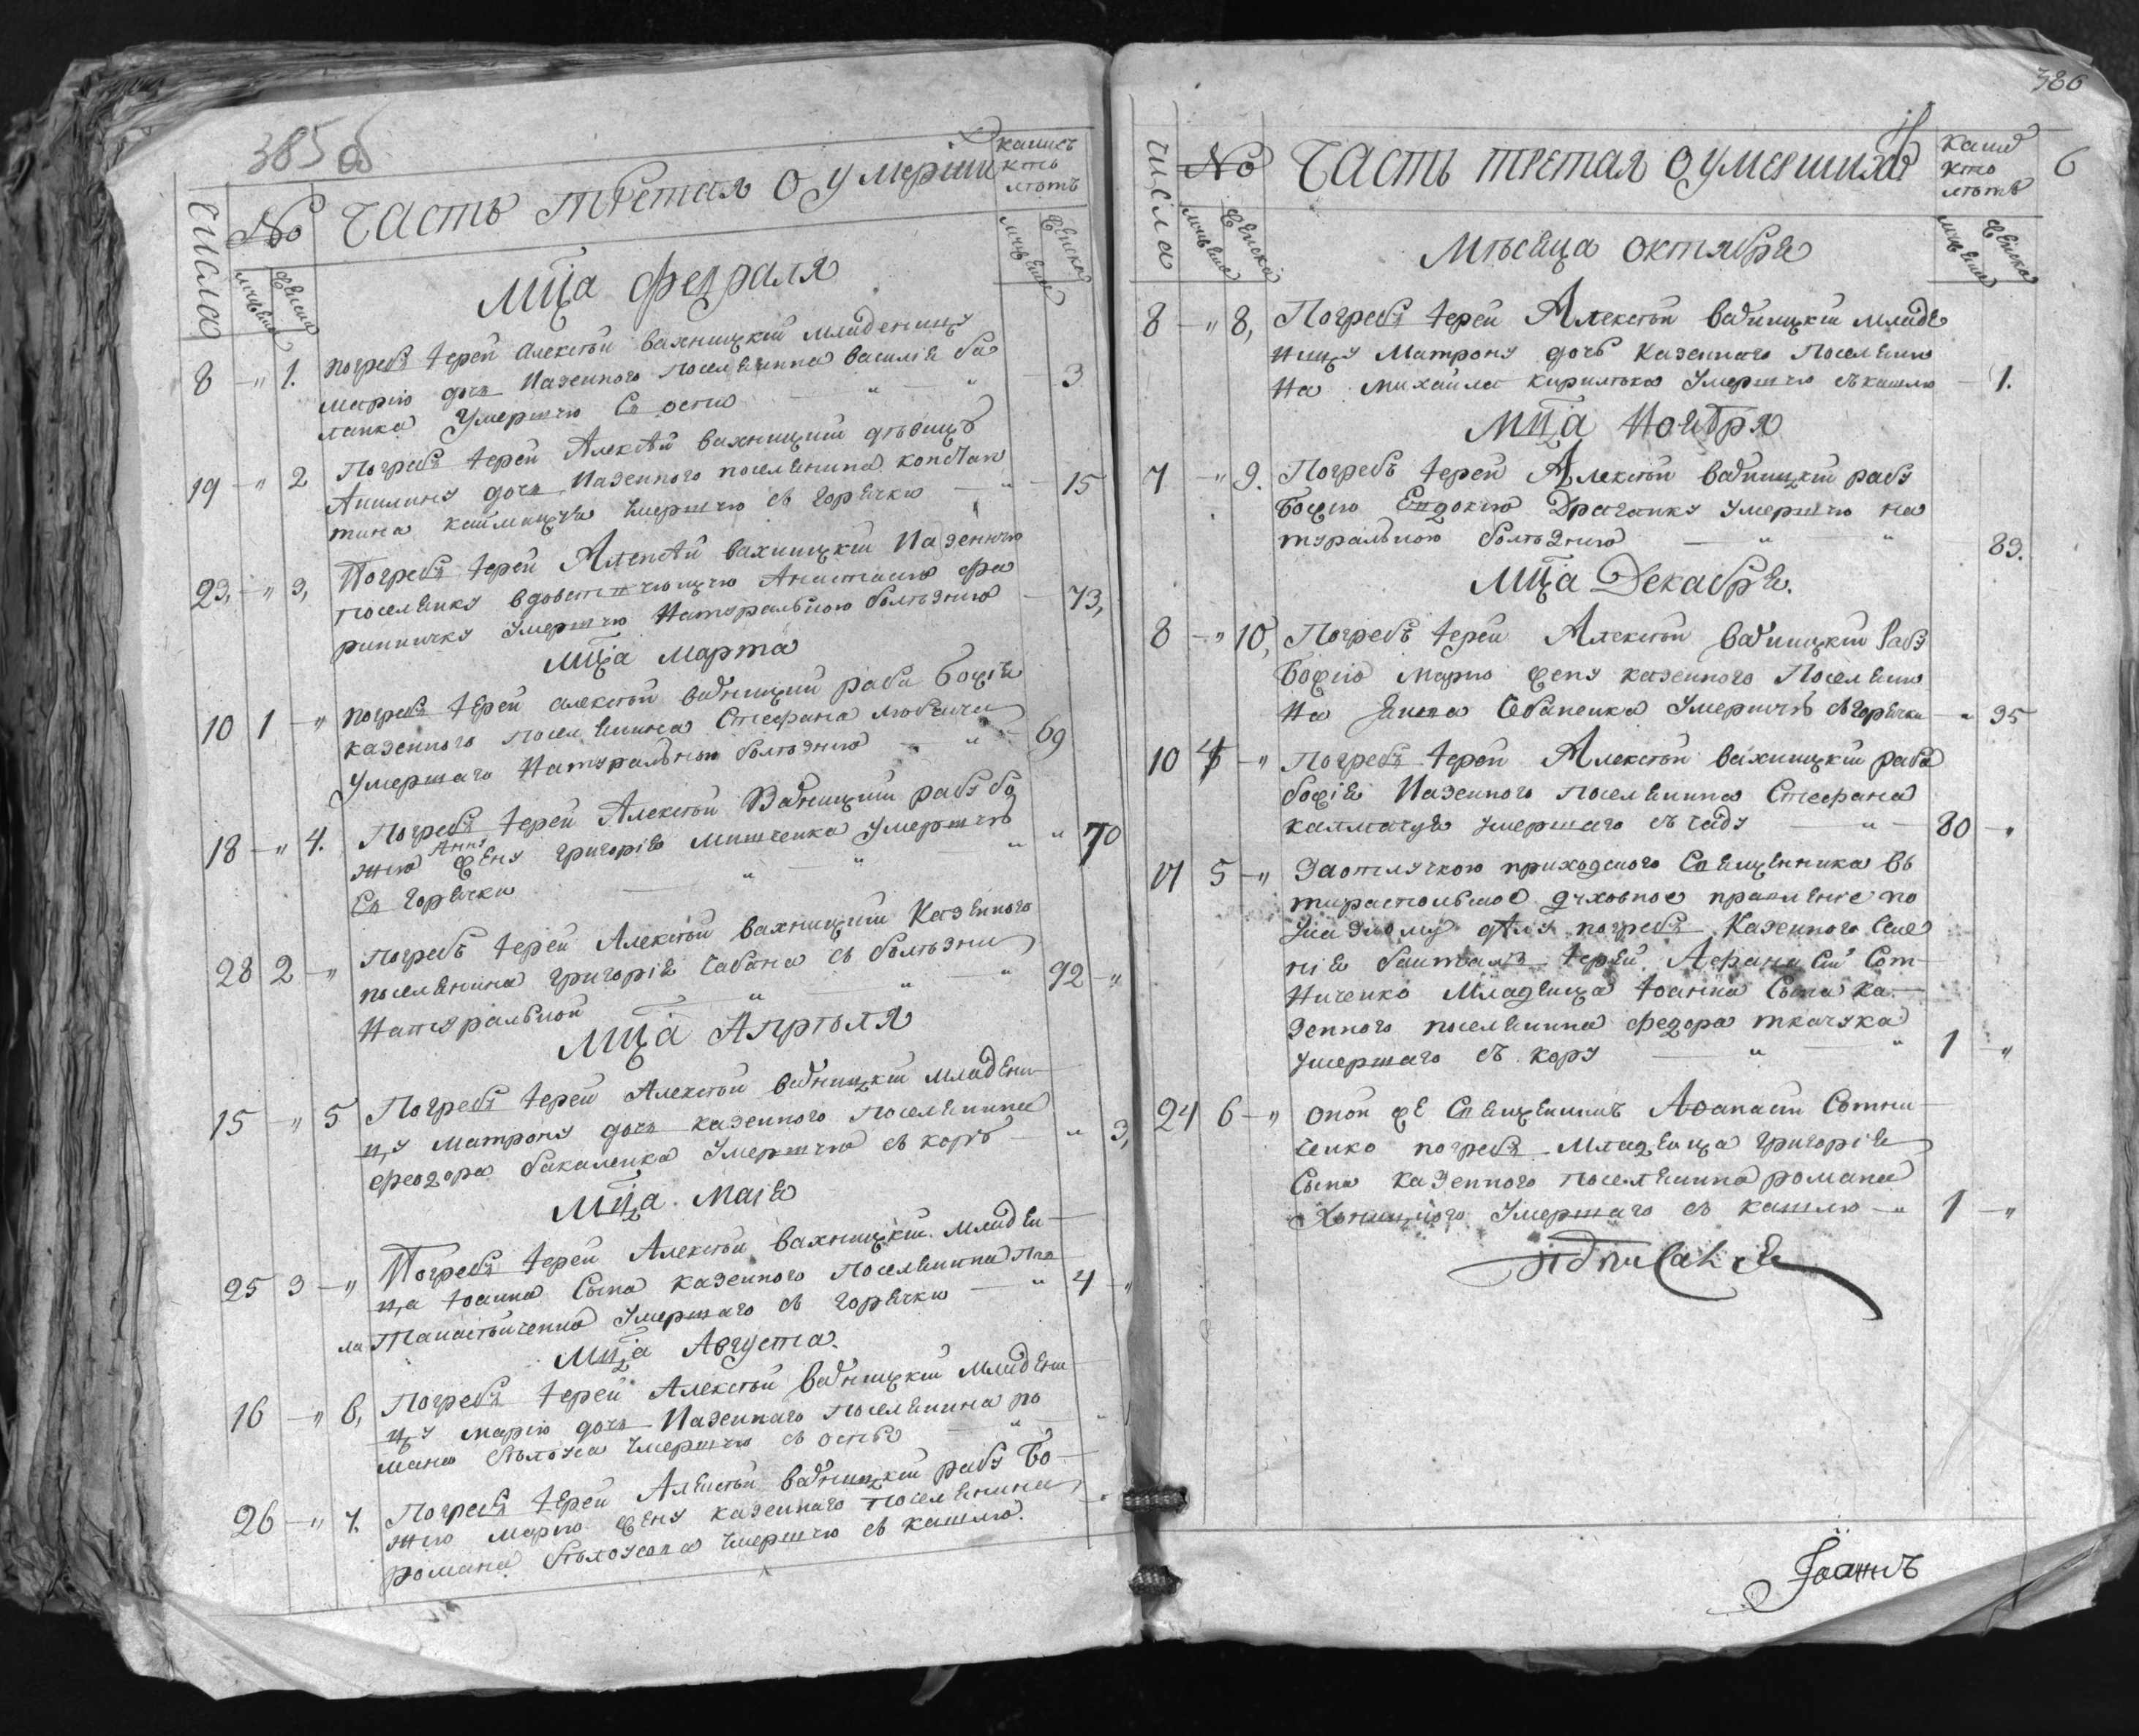 385 об
Числа
№
Часть третая о умерши
каших
кто
лѣтъ
мужеска
женска
мужеска
женска
Мца февраля
8 " 1. погребъ Іерей Алексѣй Вахницкій младеницу
Марію дочь казенного поселенина Василія Ба
ланка Умершую съ оспи " " 3
19 " 2 Погребъ Іерей Алексѣй Вахницкій дѣвицу
Акилину дочь казенного поселенина констан
тина каймакчи Умершую съ горячки " 15
23, " 3, Погребъ Іерей Алексѣй Вахницкій казенную
поселянку вдовствующую Анастасию фра
Умершую Натуральною болѣзнию 73,
Мца Марта
10 1 " погребъ Іерей Алексѣй Вахницкій раба Божія
казенного поселенина Стефана
Умершаго Натуральною болѣзнию " 69
18 " 4. Погребъ Іерей Алексѣй Вахницкій рабу бо
Анну
жию жену Григорія Мищенка Умершую
Съ горячки " " " " 70
28 2 " Погребъ Іерей Алексѣй Вахницкій Казенного
поселенина Григорія Чабана съ болѣзни
Натуральной " " " 92 "
Мца Апрѣля
15 " 5 Погребъ Іерей Алексѣй Вахницкій младени
цу Матрону дочь казенного поселенина
феодора Бакаленка Умершую съ коръ " 3,
Мца Маія
25 3 " Погребъ Іерей Алексѣй Вахницкій младен
ца Іоанна Сына казенного поселенина Пав
ла Танасѣйченка Умершаго съ горячки " 4 "
Мца Августа.
16 " 6, Погребъ Іерей Алексѣй Вахницкій младени
цу Марію дочь казенного поселенина Ро
мана Бѣлоуса Умершую съ оспы " "
26 " 7. Погребъ Іерей Алексѣй Вахницкій рабу Бо
жию Марию жену казенного поселенина
Романа Бѣлоуса Умершую съ кашлю.
386
6
Числа
№
Часть третая о умершихъ
каши
кто
лѣтъ
мужеска
женска
мужеска
женска
Мѣсяца Октября
8 " 8, Погребъ Іерей Алексѣй Вахницкій младе
ницу Матрону дочь казенного поселени
на Михайла Кирилюка Умершую съ кашлю 1.
Мца Ноября
7 " 9. Погребъ Іерей Алексѣй Вахницкій рабу
Божию Евдокию Драганку Умершую на
туральною болѣзнию " " 83.
Мца Декабря.
8 " 10, Погребъ Іерей Алексѣй Вахницкій Рабу
Божію Марию жену казенного Поселени
на Умершую съ горячки " 35
10 4 " Погребъ Іерей Алексѣй Вахницкій раба
божія казенного поселенина Стефана
Умершаго съ чаду " 80 "
17 5 " Заотлучкою приходского Священника въ
тираспольское духовное правленіе по
Указному дѣлу погребъ Казенного Селе
нія Іерей Афанасий Сот
ниченко Младенца Іоанна Сына Ка
зенного поселенина Федора ткачука
умершаго съ кору " " 1 "
24 6 " Оной же Священникъ Афанасий Сотни
ченко погребъ Младенца Григорія
Сына казенного поселенина Романа
Умершаго съ кашлю " 1 "
Іоаннъ